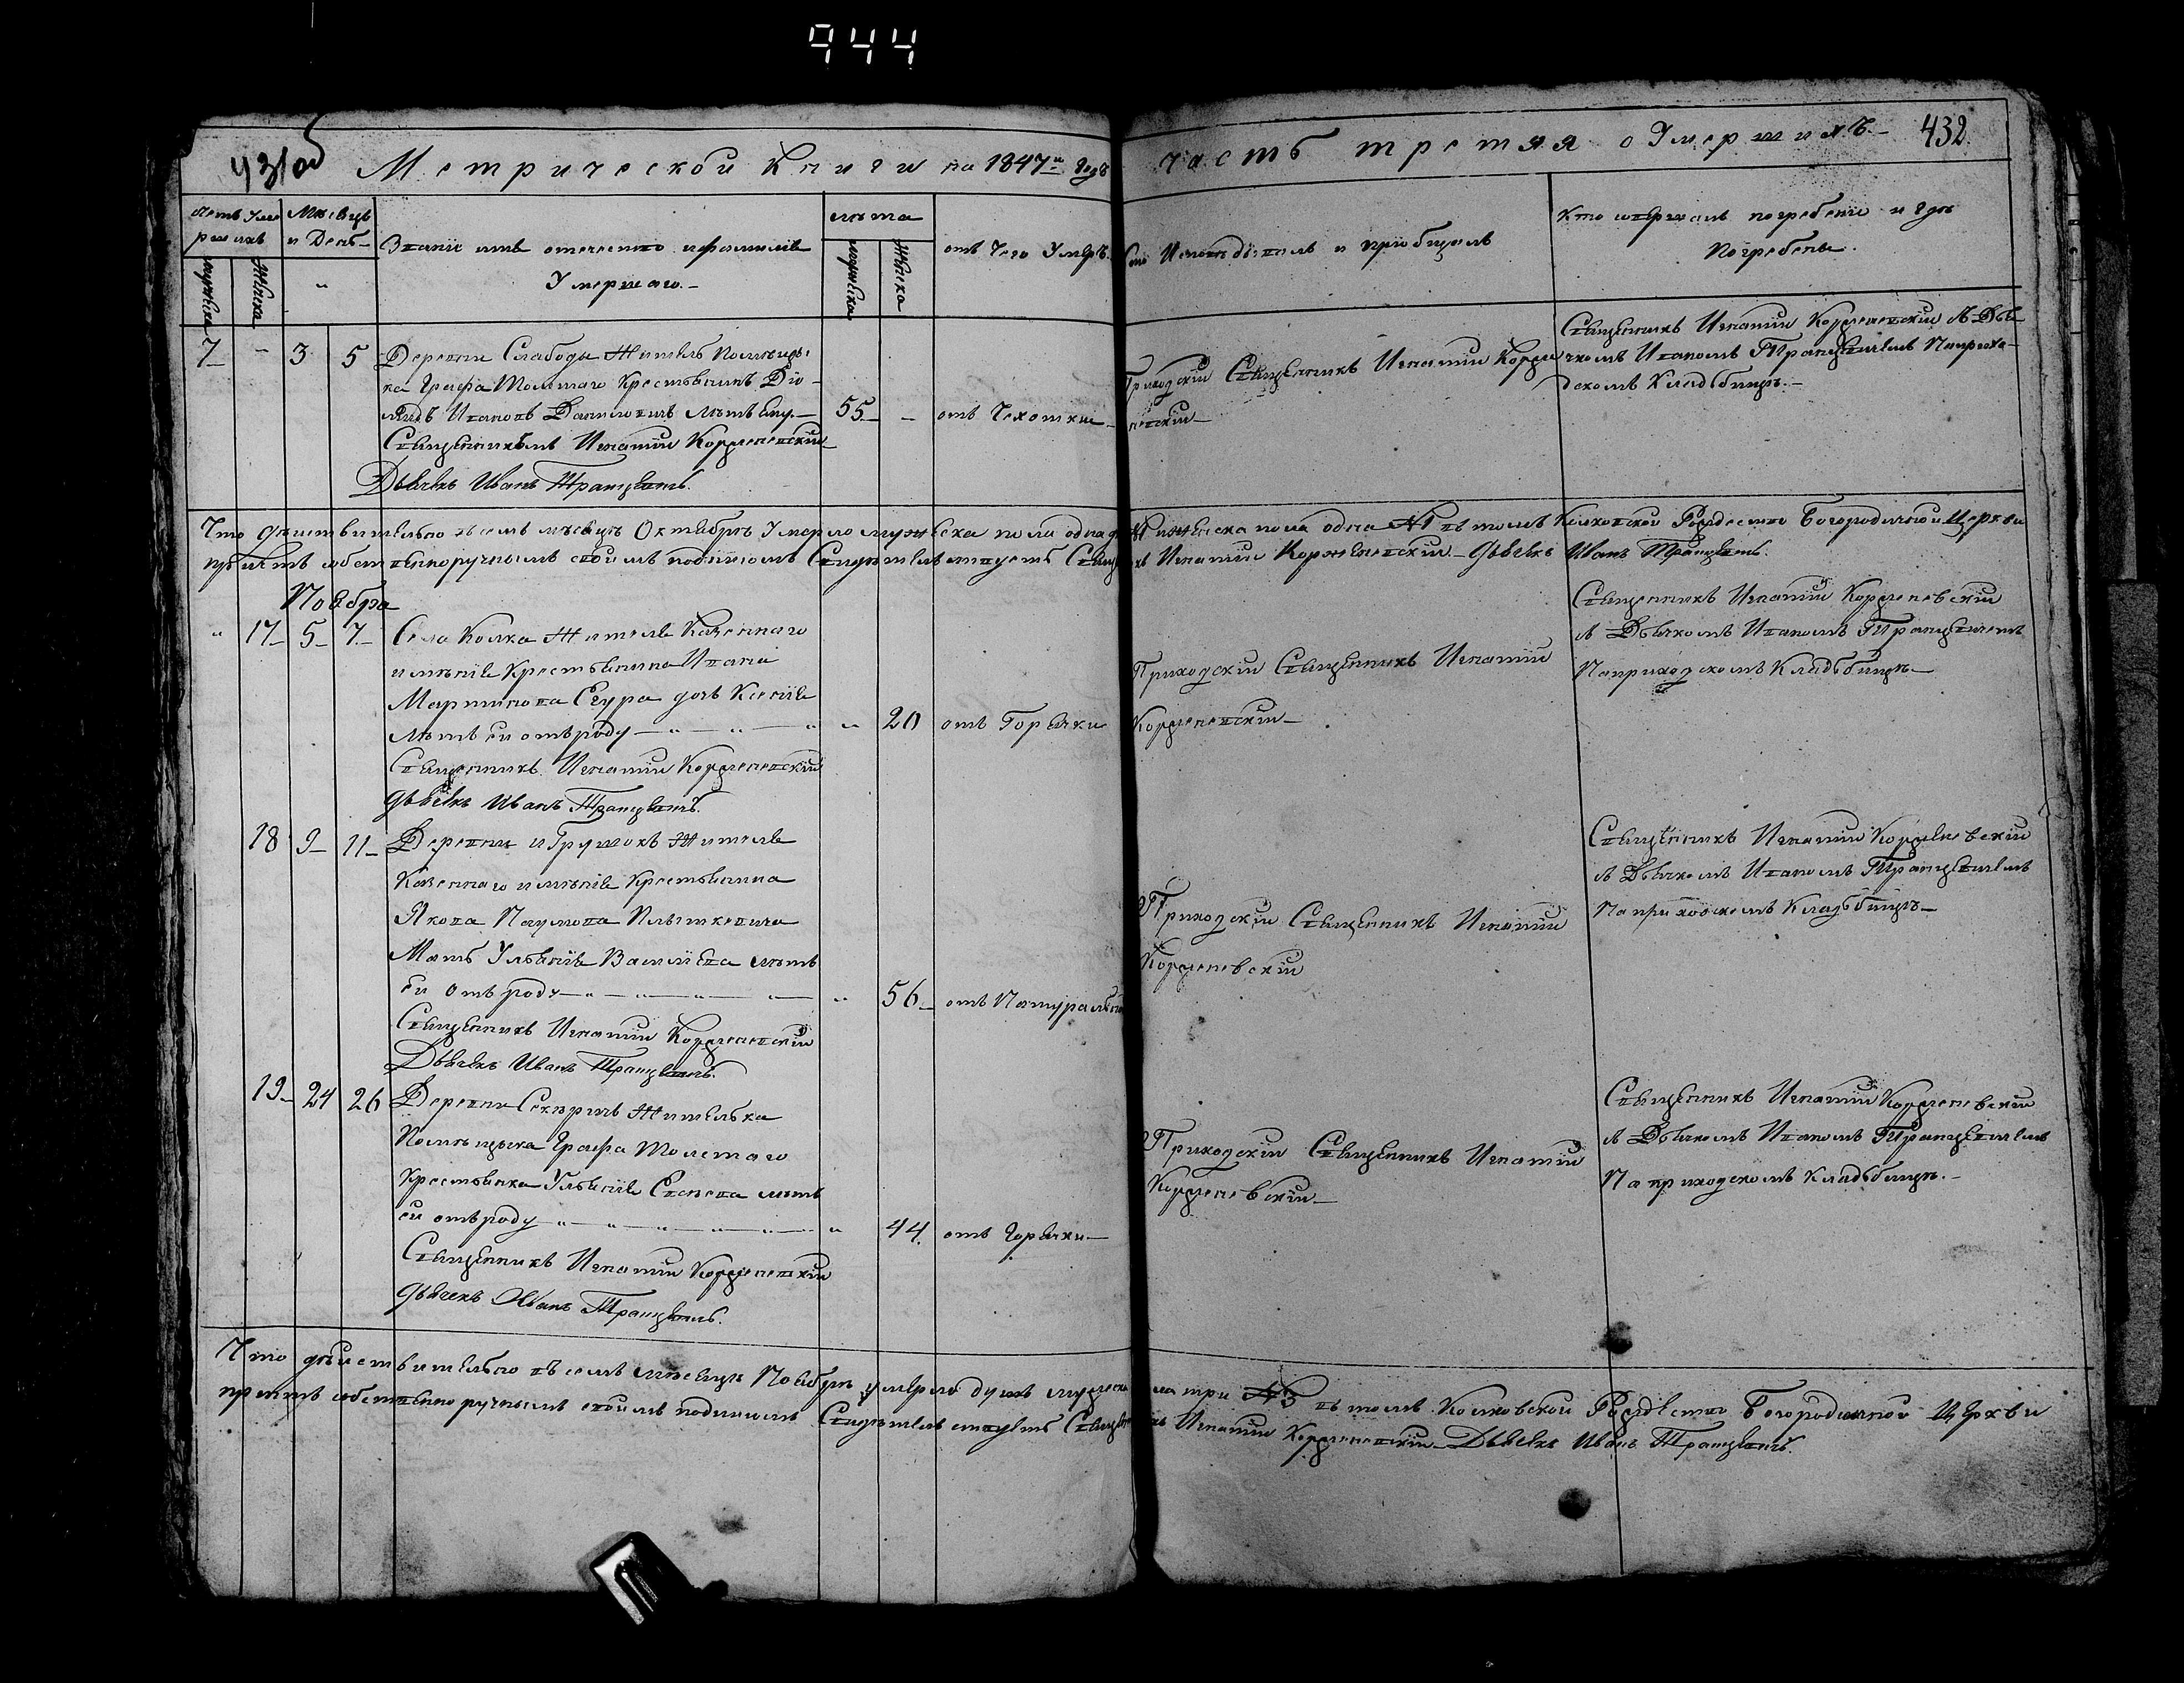 944
431об
Метрической книги на 1847й годъ часть третяя о Умершихъ. 432.
Счетъ Умершихъ
Мѣсяцъ и День
Званіе имя отечество и фамилія Умершаго.
лѣта
отъ Чего Умеръ.
Кто Исповѣдывалъ и пріобщалъ
Кто совершалъ погребеніе и гдѣ Погребены.
мужеска
Женска
мужеска
Женска
7 - 3 5
Деревни Слабоды Житель Помѣщи-
ка Графа Толстаго Крестьянинъ Дiо-
мидъ Ивановъ лѣтъ ему
Священникъ Игнатій Корженевскій
Дьячекъ Иванъ Транцевичъ.
55 - отъ Чехотки
Приходскій Священникъ Игнатій Корже-
невскій
Священникъ Игнатій Корженевскій съ Дья-
чкомъ Иваномъ Транцевичемъ Наприхо-
дскомъ Кладбищѣ.
Что дѣйствительно всемъ мѣсяцѣ Октябрѣ Умерло мужеска пола одна №1 и женска пола одна №1 втомъ Колковской Рождество Богородичной Церкви
собственноручнымъ своимъ подписомъ Свидѣтельствуетъ Священникъ Игнатій Корженевскій Дьячекъ Иванъ Транцевичъ.
Ноября
" 17 5 7
Села Колка Жителя Казеннаго
имѣнія Крестьянина Ивана
Мартинова Сгура дочь Ксенія
лѣтъ ей отъроду
Священникъ Игнатій Корженевскій
Дьячекъ Иванъ Транцевичъ.
" 20 отъ Горячки
Приходскій Священникъ Игнатій
Корженевскій
Священникъ Игнатій Корженевскій
съ Дьячкомъ Иваномъ Транцевичемъ
Наприходскомъ Кладбищѣ
18 9 11
Деревни Грушокъ Жителя
Казеннаго имѣнія Крестьянина
Якова Наумова
Мать Ульянія Васильева лѣтъ
ей Отъ роду
Священникъ Игнатій Корженевскій
Дьячекъ Иванъ Транцевичъ.
" 56 отъ Натуральной
Приходскій Священникъ Игнатій
Корженевскій
Священникъ Игнатій Корженевскій
съ Дьячкомъ Иваномъ Транцевичемъ
На приходскомъ Кладбищѣ
19 24 26
Деревни Секиричъ Жителька
Помѣщика Графа Толстаго
Крестьянка Ульянія лѣтъ
ей отъроду
Священникъ Игнатій Корженевскій
Дьячекъ Иванъ Транцевичъ.
" 44. отъ Горячки
Приходскій Священникъ Игнатій
Корженевскій
Священникъ Игнатій Корженевскій
съ Дьячкомъ Иваномъ Транцевичемъ
На приходскомъ Кладбищѣ.
Что дѣйствительно въ семъ мѣсяцѣ Ноябрѣ умерло душъ три №3 въ томъ Колковской Рождество Богородичной Церкви
собственно ручнымъ своимъ подписомъ Свидѣтельствуетъ Священникъ Игнатій Корженевскій Дьячекъ Иванъ Транцевичъ.